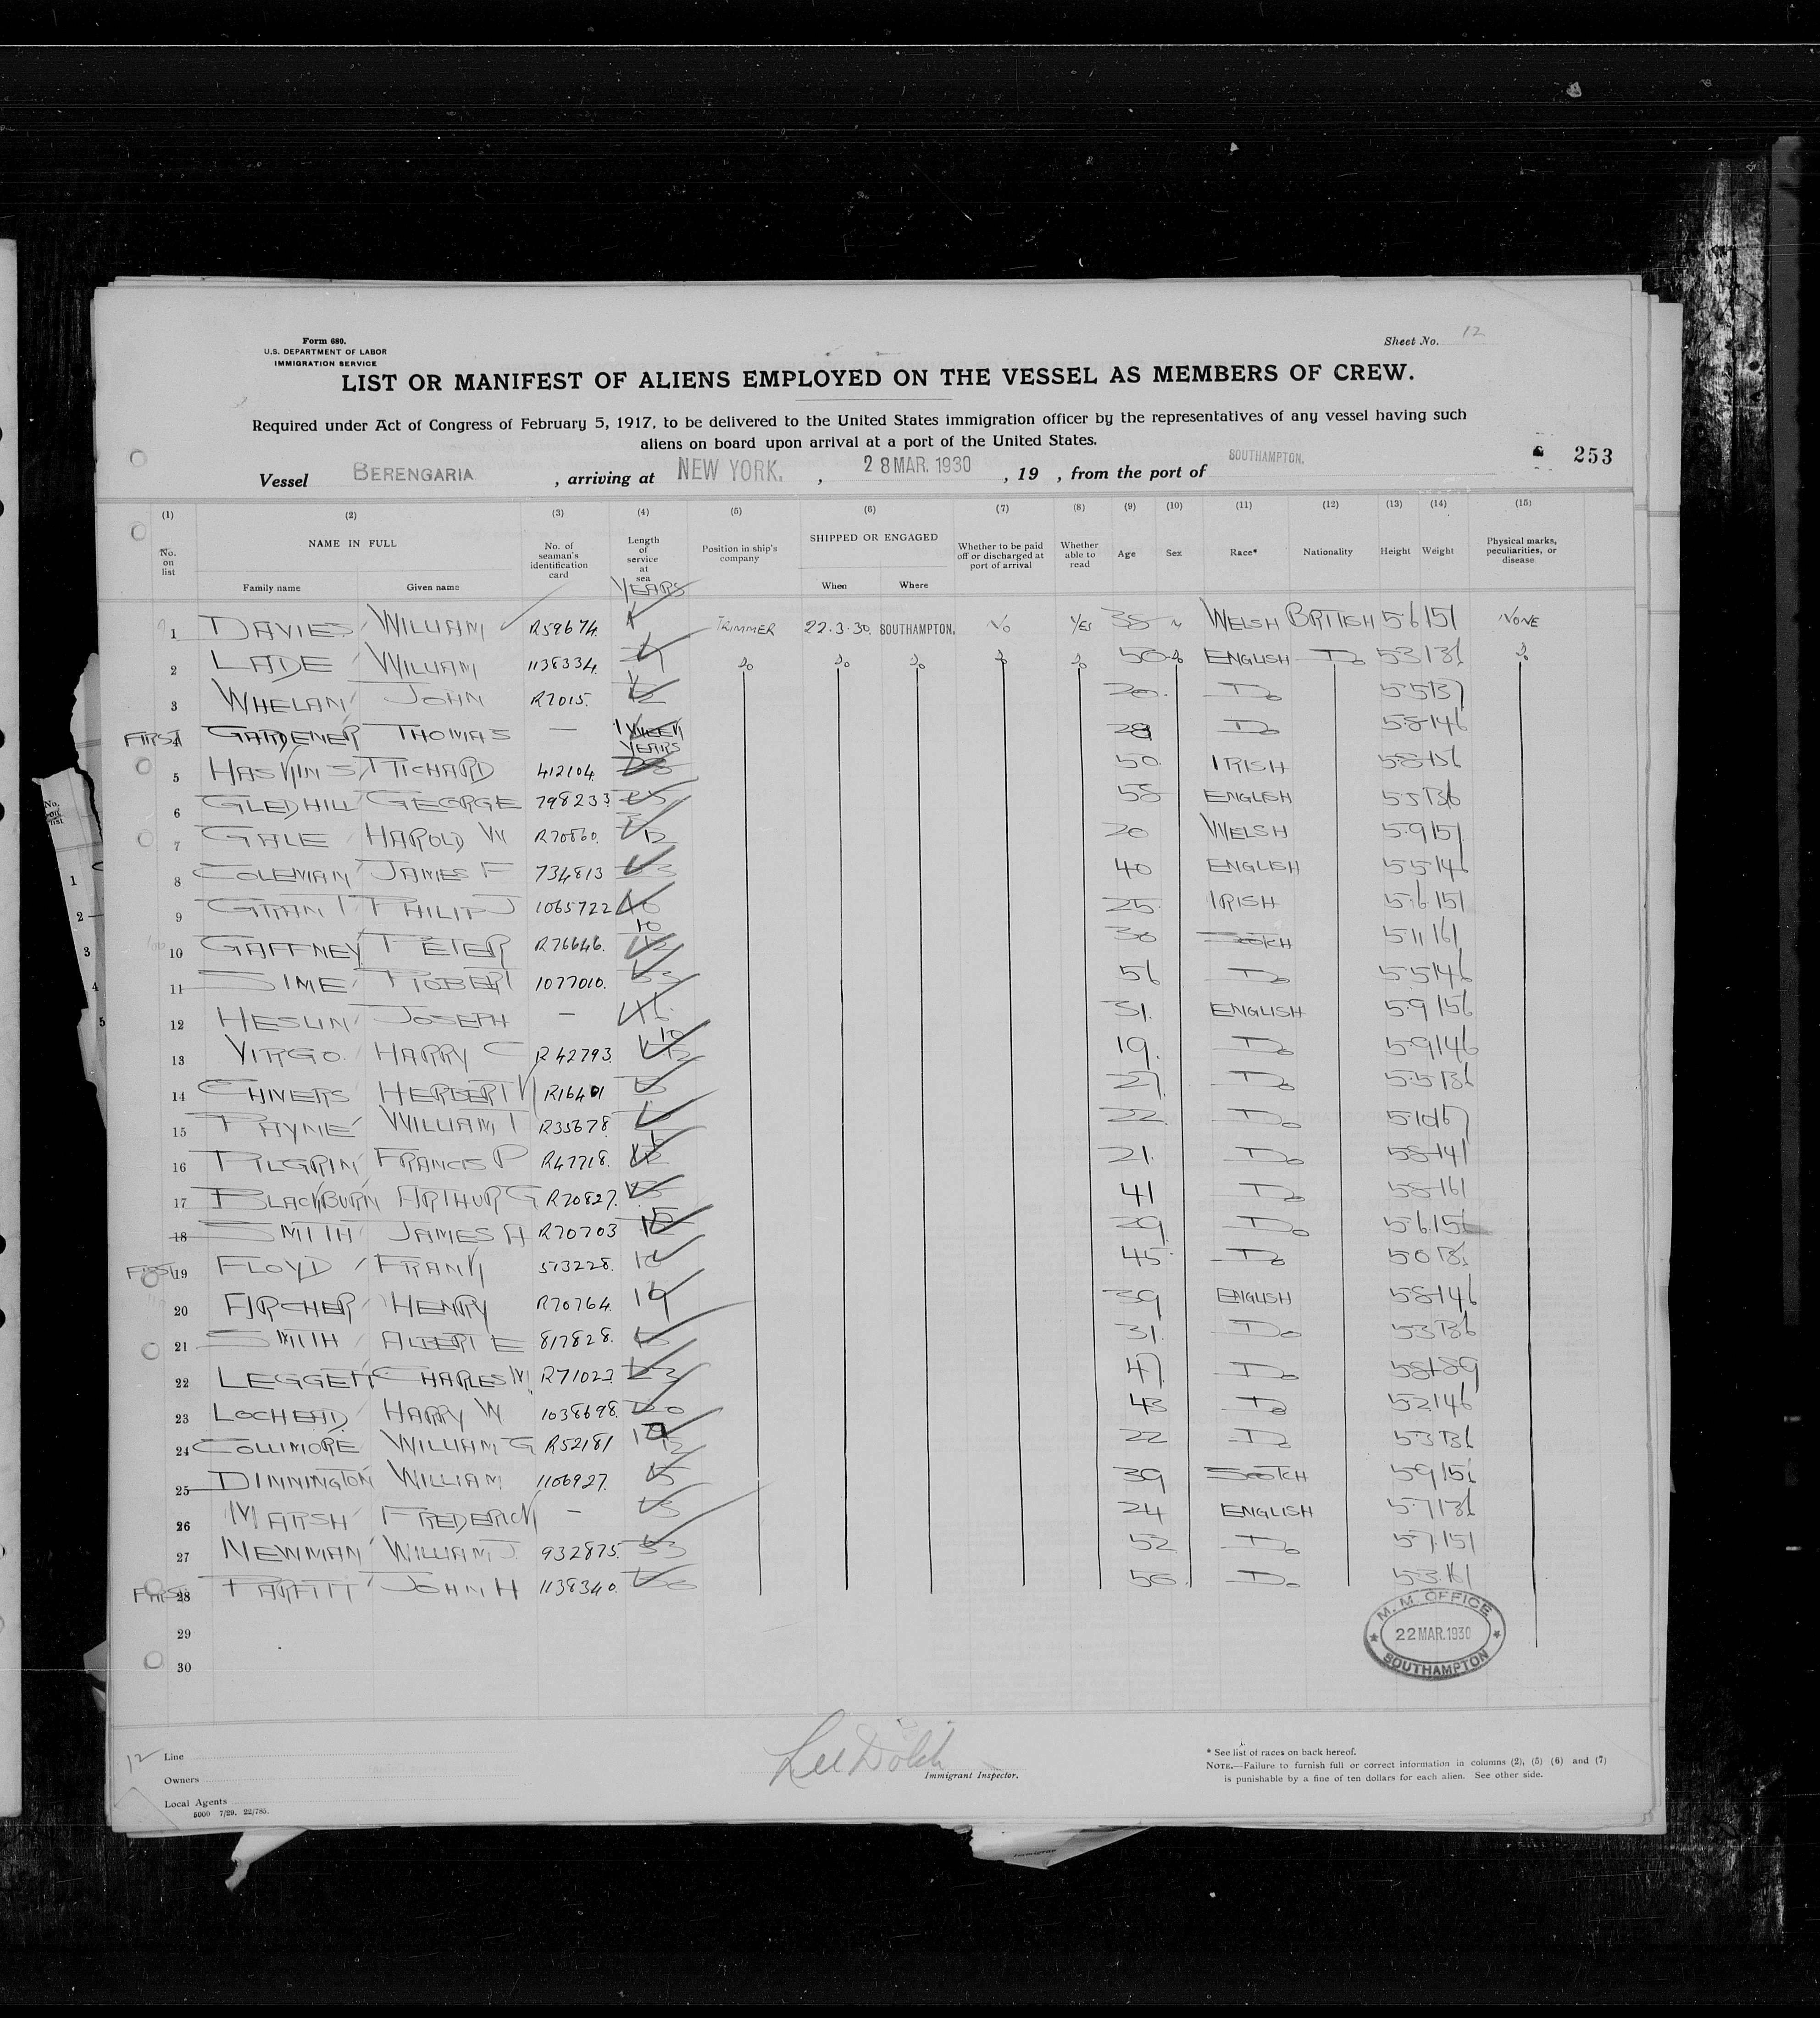 Form 680.
U.S. DEPARTMENT OF LABOR
IMMIGRATION SERVICE
Sheet No. 12
LIST OR MANIFEST OF ALIENS EMPLOYED ON THE VESSEL AS MEMBERS OF CREW.
Required under Act of Congress of February 5, 1917, to be delivered to the United States immigration officer by the representatives of any vessel having such
aliens on board upon arrival at a port of the United States.
253
Vessel BERENGARIA , arriving at NEW YORK. , 28 MAR. 1930 , 19 , from the port of SOUTHAMPTON.
(1) (2) (3) (4) (5) (6) (7) (8) (9) (10) (11) (12) (13) (14) (15)
No. on list NAME IN FULL Family name Given name No. of seaman's identification card Length of service at sea YEARS Position in ship's company SHIPPED OR ENGAGED When Where Whether to be paid off or discharged at port of arrival Whether able to read Age Sex Race* Nationality Height Weight Physical marks, peculiarities, or disease
1 DAVIES WILLIAM R59674 TRIMMER 22.3.30 SOUTHAMPTON. No YES 35 WELSH BRITISH 5.6 151 NONE
2 LADE WILLIAM 1138334 Do Do Do Do Do 50 Do ENGLISH Do 5.3 131 Do
3 WHELAN JOHN R7015. 20. Do 5.5 137
FIRST 4 GARDENER THOMAS — 1 WEEK 28 Do 5.8 146
YEARS
5 HASKINS RICHARD 412104 50 IRISH 5.8 156
6 GLEDHILL GEORGE 798233 58 ENGLISH 5.5 136
7 GALE HAROLD W R70860. 20 WELSH 5.9 151
8 COLEMAN JAMES F 734813 40 ENGLISH 5.5 146
9 GRANT PHILIP J 1065722 25 IRISH 5.6 151
10 GAFFNEY PETER R76646. 30 SCOTCH 5.11 161
11 SIME ROBERT 1077010. 56 Do 5.5 146
12 HESLIN JOSEPH — 31. ENGLISH 5.9 156
13 VIRGO. HARRY C R42793. 19. Do 5.9 146
14 CHIVERS HERBERT W 27. Do 5.5 136
15 PAYNE WILLIAM T R35678 22 Do
16 PILGRIM FRANCIS P R47718. 21. Do 5.8 141
17 BLACKBURN ARTHUR G R70827. 41 Do 5.8 161
18 SMITH JAMES A R70703 Do 5.6 156
FIRST 19 FLOYD FRANK 513228. 45 Do 5.0 131
20 HENRY R70764. 39 ENGLISH 5.8 146
21 SMITH ALBERT E 817828. 31. Do 5.3 136
22 LEGGETT CHARLES W. 47. Do 5.8 189
23 LOCHEAD HARRY W 1038698. 43 Do 5.2 146
24 COLLIMORE WILLIAM G R52181 22 Do 5.3 136
25 DINNINGTON WILLIAM 1106927. 39 SCOTCH 5.9 151
26 MARSH FREDERICK — 24 ENGLISH 5.7 136
27 NEWMAN WILLIAM J. 932875. 52 Do 5.7 151
FIRST 28 PARFITT JOHN H 1138340. 56. Do
29
30
M. M. OFFICE
22 MAR. 1930
SOUTHAMPTON
12
Line
Owners
Local Agents
5000 7/29. 22/785.
Immigrant Inspector.
* See list of races on back hereof.
NOTE.—Failure to furnish full or correct information in columns (2), (5) (6) and (7)
is punishable by a fine of ten dollars for each alien. See other side.
No. on list
1
2
3
4
5